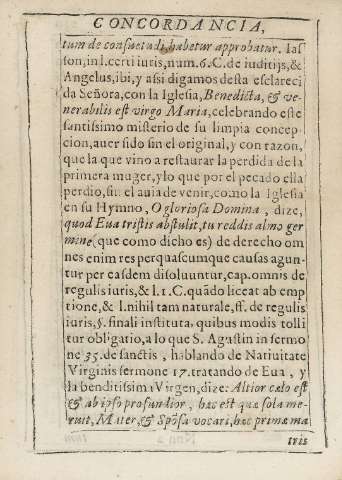 CONCORDANCIA,
tum de consuetudi. habetur approbatur. Ias
son, in l. certi iuris, num. 6. C. de iuditijs, &
Angelus, ibi, y assi digamos desta esclareci
da Señora, con la Iglesia, Benedicta, & ve-
nerabilis est virgo Maria, celebrando este
santissimo misterio de su limpia concep-
cion, auer sido sin el original, y con razon,
que la que vino a restaurar la perdida de la
primera muger, y lo que por el pecado ella
perdio, sin el auia de venir, como la Iglesia
en su Hymno, O gloriosa Domina, dize,
quod Eua tristis abstulit, tu reddis almo ger
mine (que como dicho es) de derecho om
nes enim res per quascumque causas agun
tur per easdem disoluuntur, cap. omnis de
regulis iuris, & l. 1. C. quãdo liceat ab emp
tione, & l. nihil tam naturale, ff. de regulis
iuris, §. finali instituta, quibus modis tolli
tur obligatio, a lo que S. Agustin in sermo
ne 35. de sanctis, hablando de Natiuitate
Virginis sermone 17. tratando de Eua, y
la benditisima Virgen, dize: Altior cælo est
& ab ipso profundior, hæc est quæ sola me-
ruit, Mater, & Spõsa vocari, hæc primæ ma
tris